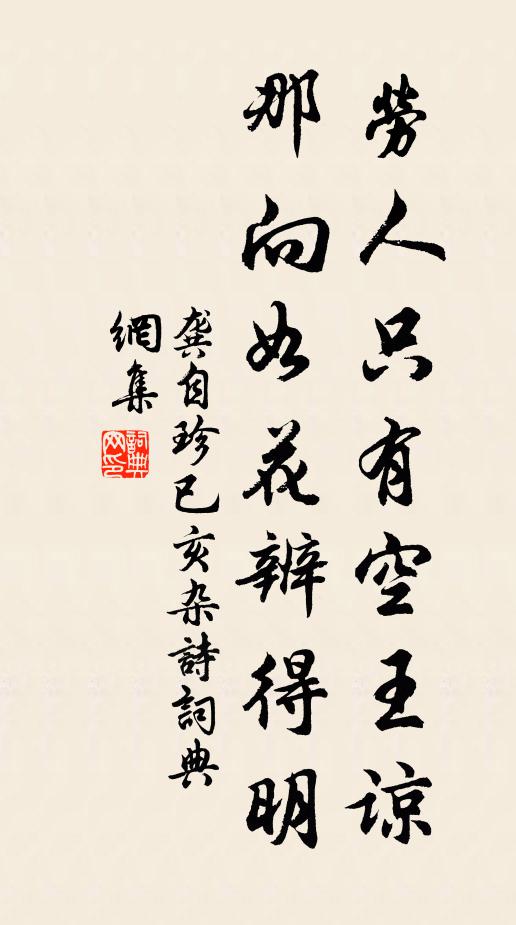 劳人只有空王谅
那向如花辨得明
龚自珍已亥杂詩詞典
網集
詞典
网印